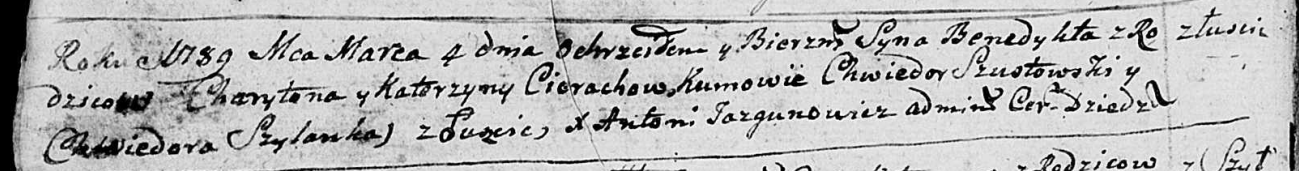 Roku 1789 Mca Marca 4 dnia Ochrzciłem y Bierzm Syna Benedykta z Ro złuscic
dzicow Charytona y Katerzyny Cierachow, Kumowie Chwiedor Szustowski y
Chwiedora Szylanka) z Łuscic, X Antoni Jazgunowicz admin Cer. Dziedz
z Rodzicow z Szył